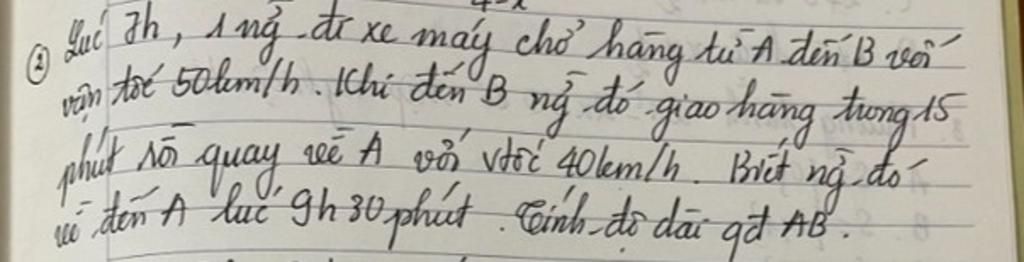 ② Lúc 7h, 1 ng̉ đi xe máy chở hàng từ A đến B với
vận tốc 50km/h. Khi đến B ng̉ đó giao hàng trong 15
phút rồi quay về A với vtốc 40km/h. Biết ng̉ đó
về đến A lúc 9h30 phút. Tính độ dài qđ AB.